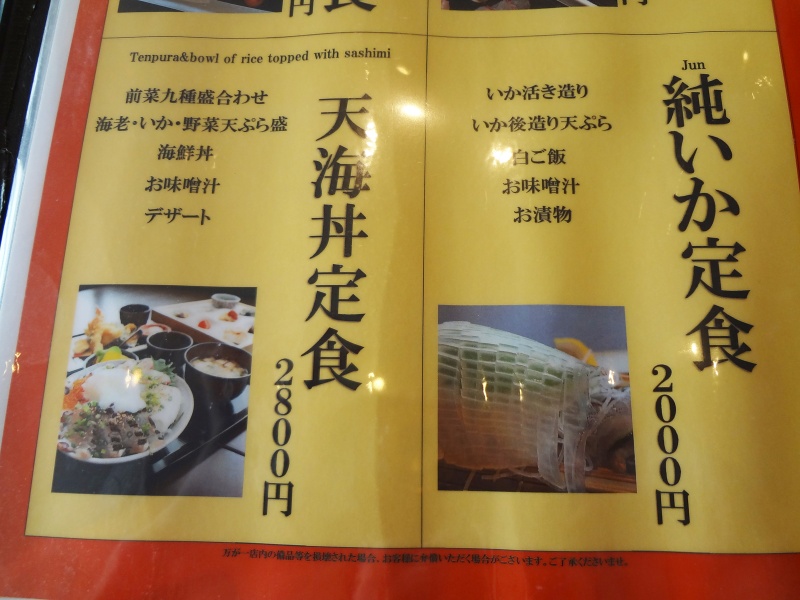 円
食
円
Tenpura&bowl of rice topped with sashimi
天海丼定食
2800円
前菜九種盛合わせ
海老・いか・野菜天ぷら盛
海鮮丼
お味噌汁
デザート
Jun
純いか定食
2000円
いか活き造り
いか後造り天ぷら
白ご飯
お味噌汁
お漬物
万が一店内の備品等を損壊された場合、お客様に弁償いただく場合がございます。ご了承くださいませ。